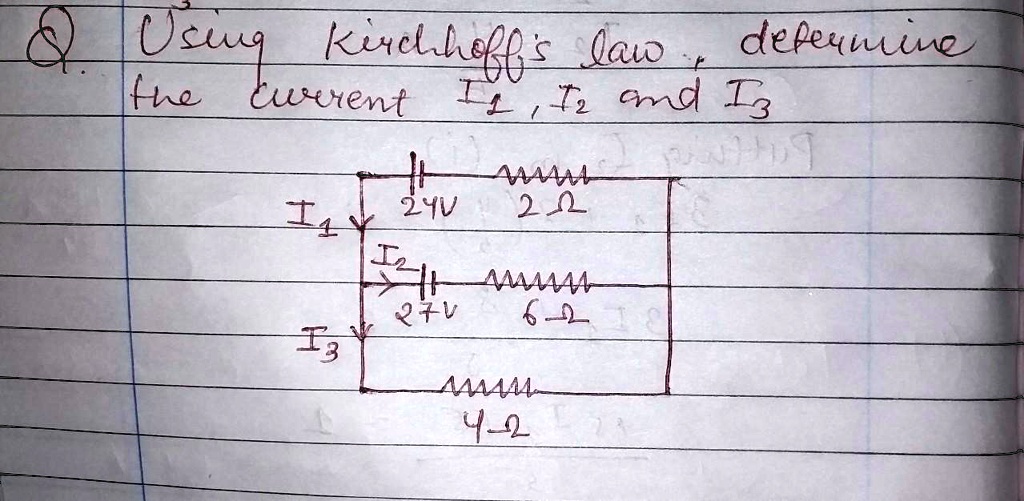 Q. Using Kirchhoff's law, determine
the current I1, I2 and I3
24V 2Ω
I1
I2
27V 6Ω
I3
4Ω